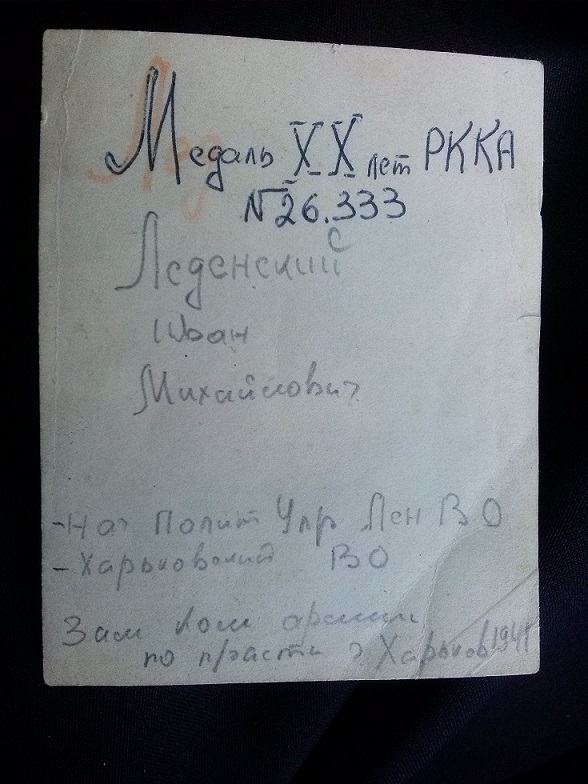 Медаль XX лет РККА
№26.333
с
Леденский
Иван
Михайлович
- Нач Полит Упр Лен В О
- Харьковский ВО
Зам Ком армии
по п/части г Харьков 1941